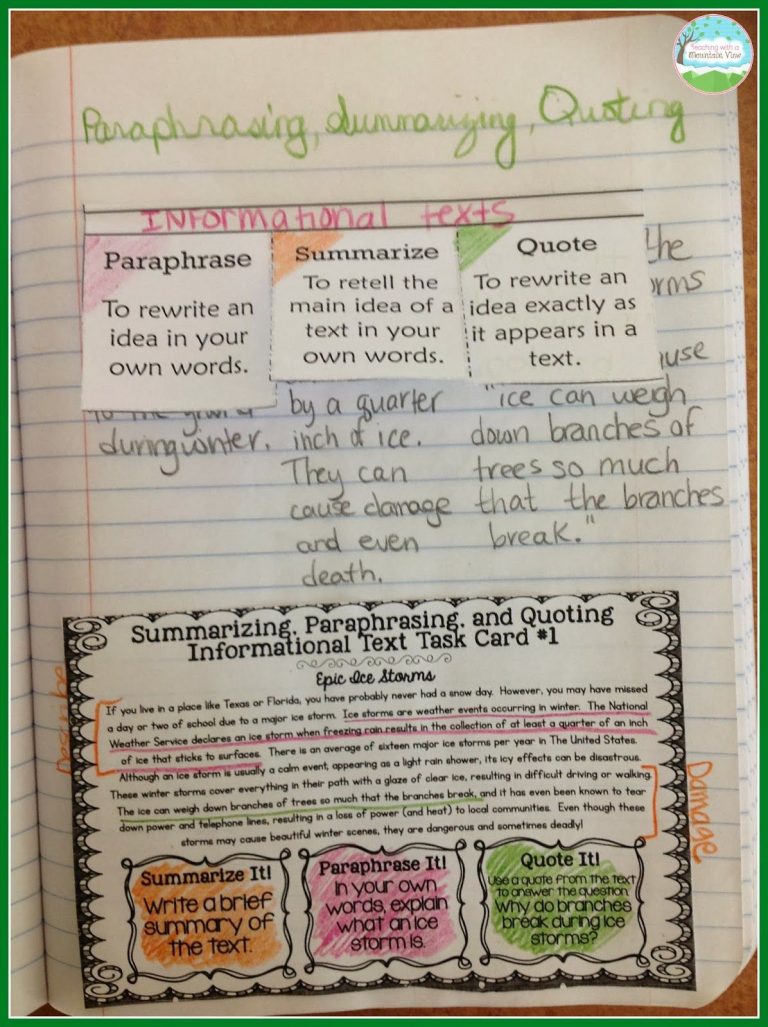 Teaching with a
Mountain View
Paraphrasing, Summarizing, Quoting
INformational texts
Paraphrase
To rewrite an
idea in your
own words.
Summarize
To retell the
main idea of a
text in your
own words.
Quote
To rewrite an
idea exactly as
it appears in a
text.
the
during winter.
by a quarter
inch of ice.
They can
cause damage
and even
death.
"ice can weigh
down branches of
trees so much
that the branches
break."
Summarizing, Paraphrasing, and Quoting
Informational Text Task Card #1
Epic Ice Storms
If you live in a place like Texas or Florida, you have probably never had a snow day. However, you may have missed
a day or two of school due to a major ice storm. Ice storms are weather events occurring in winter. The National
Weather Service declares an ice storm when freezing rain results in the collection of at least a quarter of an inch
of ice that sticks to surfaces. There is an average of sixteen major ice storms per year in The United States.
Although an ice storm is usually a calm event, appearing as a light rain shower, its icy effects can be disastrous.
These winter storms cover everything in their path with a glaze of clear ice, resulting in difficult driving or walking.
The ice can weigh down branches of trees so much that the branches break, and it has even been known to tear
down power and telephone lines, resulting in a loss of power (and heat) to local communities. Even though these
storms may cause beautiful winter scenes, they are dangerous and sometimes deadly!
Describe
Damage
Summarize It!
Write a brief
summary of
the text.
Paraphrase It!
In your own
words, explain
what an ice
storm is.
Quote It!
Use a quote from the text
to answer the question
Why do branches
break during ice
storms?